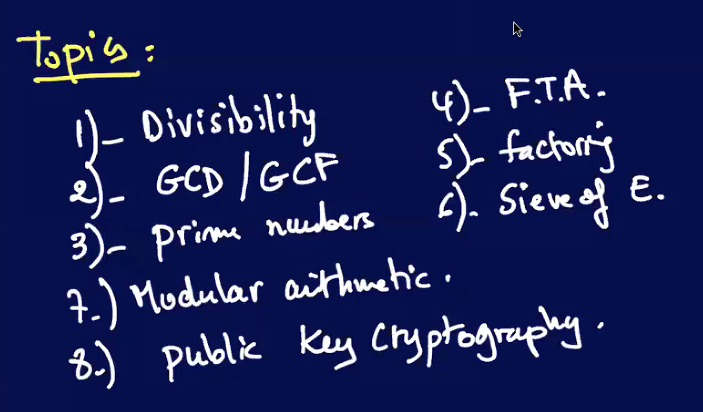 Topics:
1)- Divisibility
2)- GCD / GCF
3)- prime numbers
4)- F.T.A.
5)- factoring
6)- Sieve of E.
7.) Modular arithmetic.
8.) public key Cryptography.